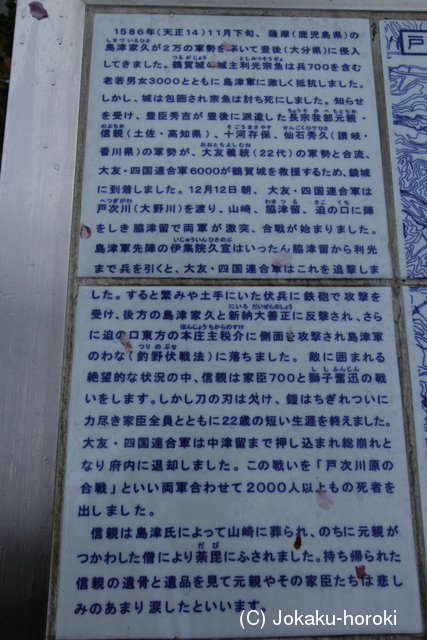 1586年(天正14)11月下旬、薩摩(鹿児島県)の
しまづ いえひさ
島津家久が2万の軍勢を率いて豊後(大分県)に侵入
つるがじょう としみつそうぎょ
してきました。鶴賀城の城主利光宗魚は兵700を含む
老若男女3000とともに島津軍に激しく抵抗しました。
しかし、城は包囲され宗魚は討ち死にしました。知らせ
ちょうそ かべ もとちか
を受け、豊臣秀吉が豊後に派遣した長宗我部元親・
のぶちか そごうまさやす せんごくひでひさ
信親(土佐・高知県)、十河存保、仙石秀久(讃岐・
おおともよしむね
香川県)の軍勢が、大友義統(22代)の軍勢と合流、
大友・四国連合軍6000が鶴賀城を救援するため、鏡城
に到着しました。12月12日朝、大友・四国連合軍は
へつぎがわ わきつる さこ くち
戸次川(大野川)を渡り、山崎、脇津留、迫の口に陣
をしき脇津留で両軍が激突、合戦が始まりました。
いじゅういんひさのぶ
島津軍先陣の伊集院久宣はいったん脇津留から利光
まで兵を引くと、大友・四国連合軍はこれを追撃しま
した。すると繁みや土手にいた伏兵に鉄砲で攻撃を
にいろ だいぜんのしょう
受け、後方の島津家久と新納大善正に反撃され、さら
ほんじょうちからのすけ
に迫の口東方の本庄主税介に側面を攻撃され島津軍
つり のぶせ
のわな(釣野伏戦法)に落ちました。敵に囲まれる
し し ふんじん
絶望的な状況の中、信親は家臣700と獅子奮迅の戦
いをします。しかし刀の刃は欠け、鎧はちぎれついに
力尽き家臣全員とともに22歳の短い生涯を終えました。
大友・四国連合軍は中津留まで押し込まれ総崩れと
なり府内に退却しました。この戦いを「戸次川原の
合戦」といい両軍合わせて2000人以上もの死者を
出しました。
信親は島津氏によって山崎に葬られ、のちに元親が
だ び
つかわした僧により荼毘にふされました。持ち帰られた
信親の遺骨と遺品を見て元親やその家臣たちは悲し
みのあまり涙したといいます。
戸
(C) Jokaku-horoki